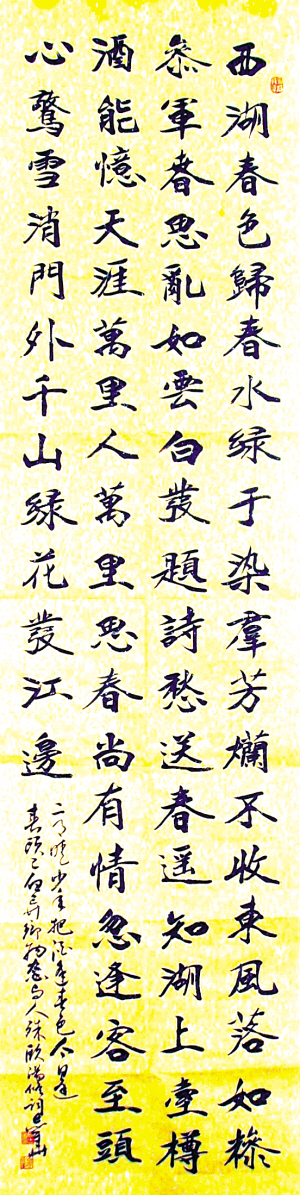 西湖春色歸春水緑于染羣芳爛不收東風落如糝
叅軍春思亂如雲白發題詩愁送春遥知湖上壹樽
酒能憶天涯萬里人萬里思春尚有情忽逢客至頭
心驚雪消門外千山緑花發江邊
二月晴少年把酒逢春色今日逢
春頭已白异鄉物態与人殊欧陽修詞